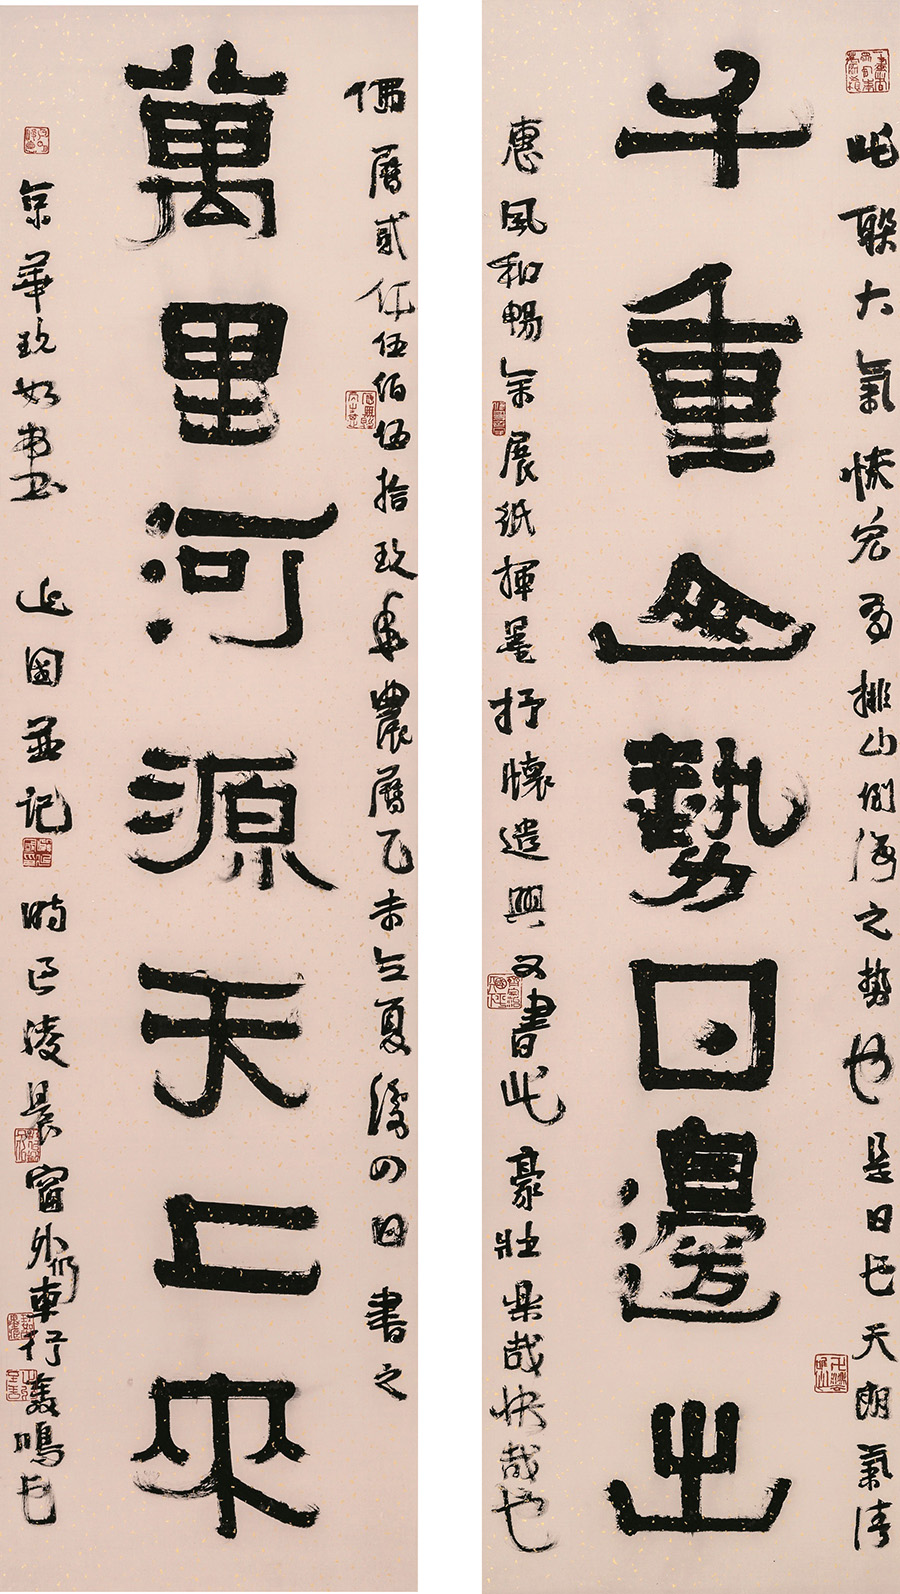 此聯大氣恢宏有排山倒海之勢也是日也天朗氣清
千重山勢日邊出
惠風和暢余展紙揮墨抒懷遣興又書此豪壯哉快哉也
曆貳仟伍佰伍拾玖年農曆乙未立夏後四日書之
萬里河源天上來
京華如 國並記 時已凌晨窗外車行轟鳴也